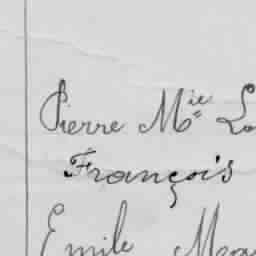 Pierre Mie Lo
François
Emile